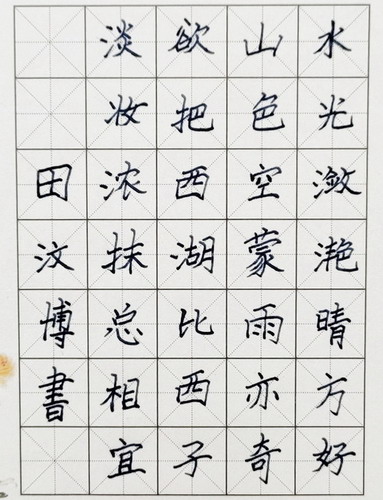 水光潋滟晴方好
山色空蒙雨亦奇
欲把西湖比西子
淡妆浓抹总相宜
田汶博書